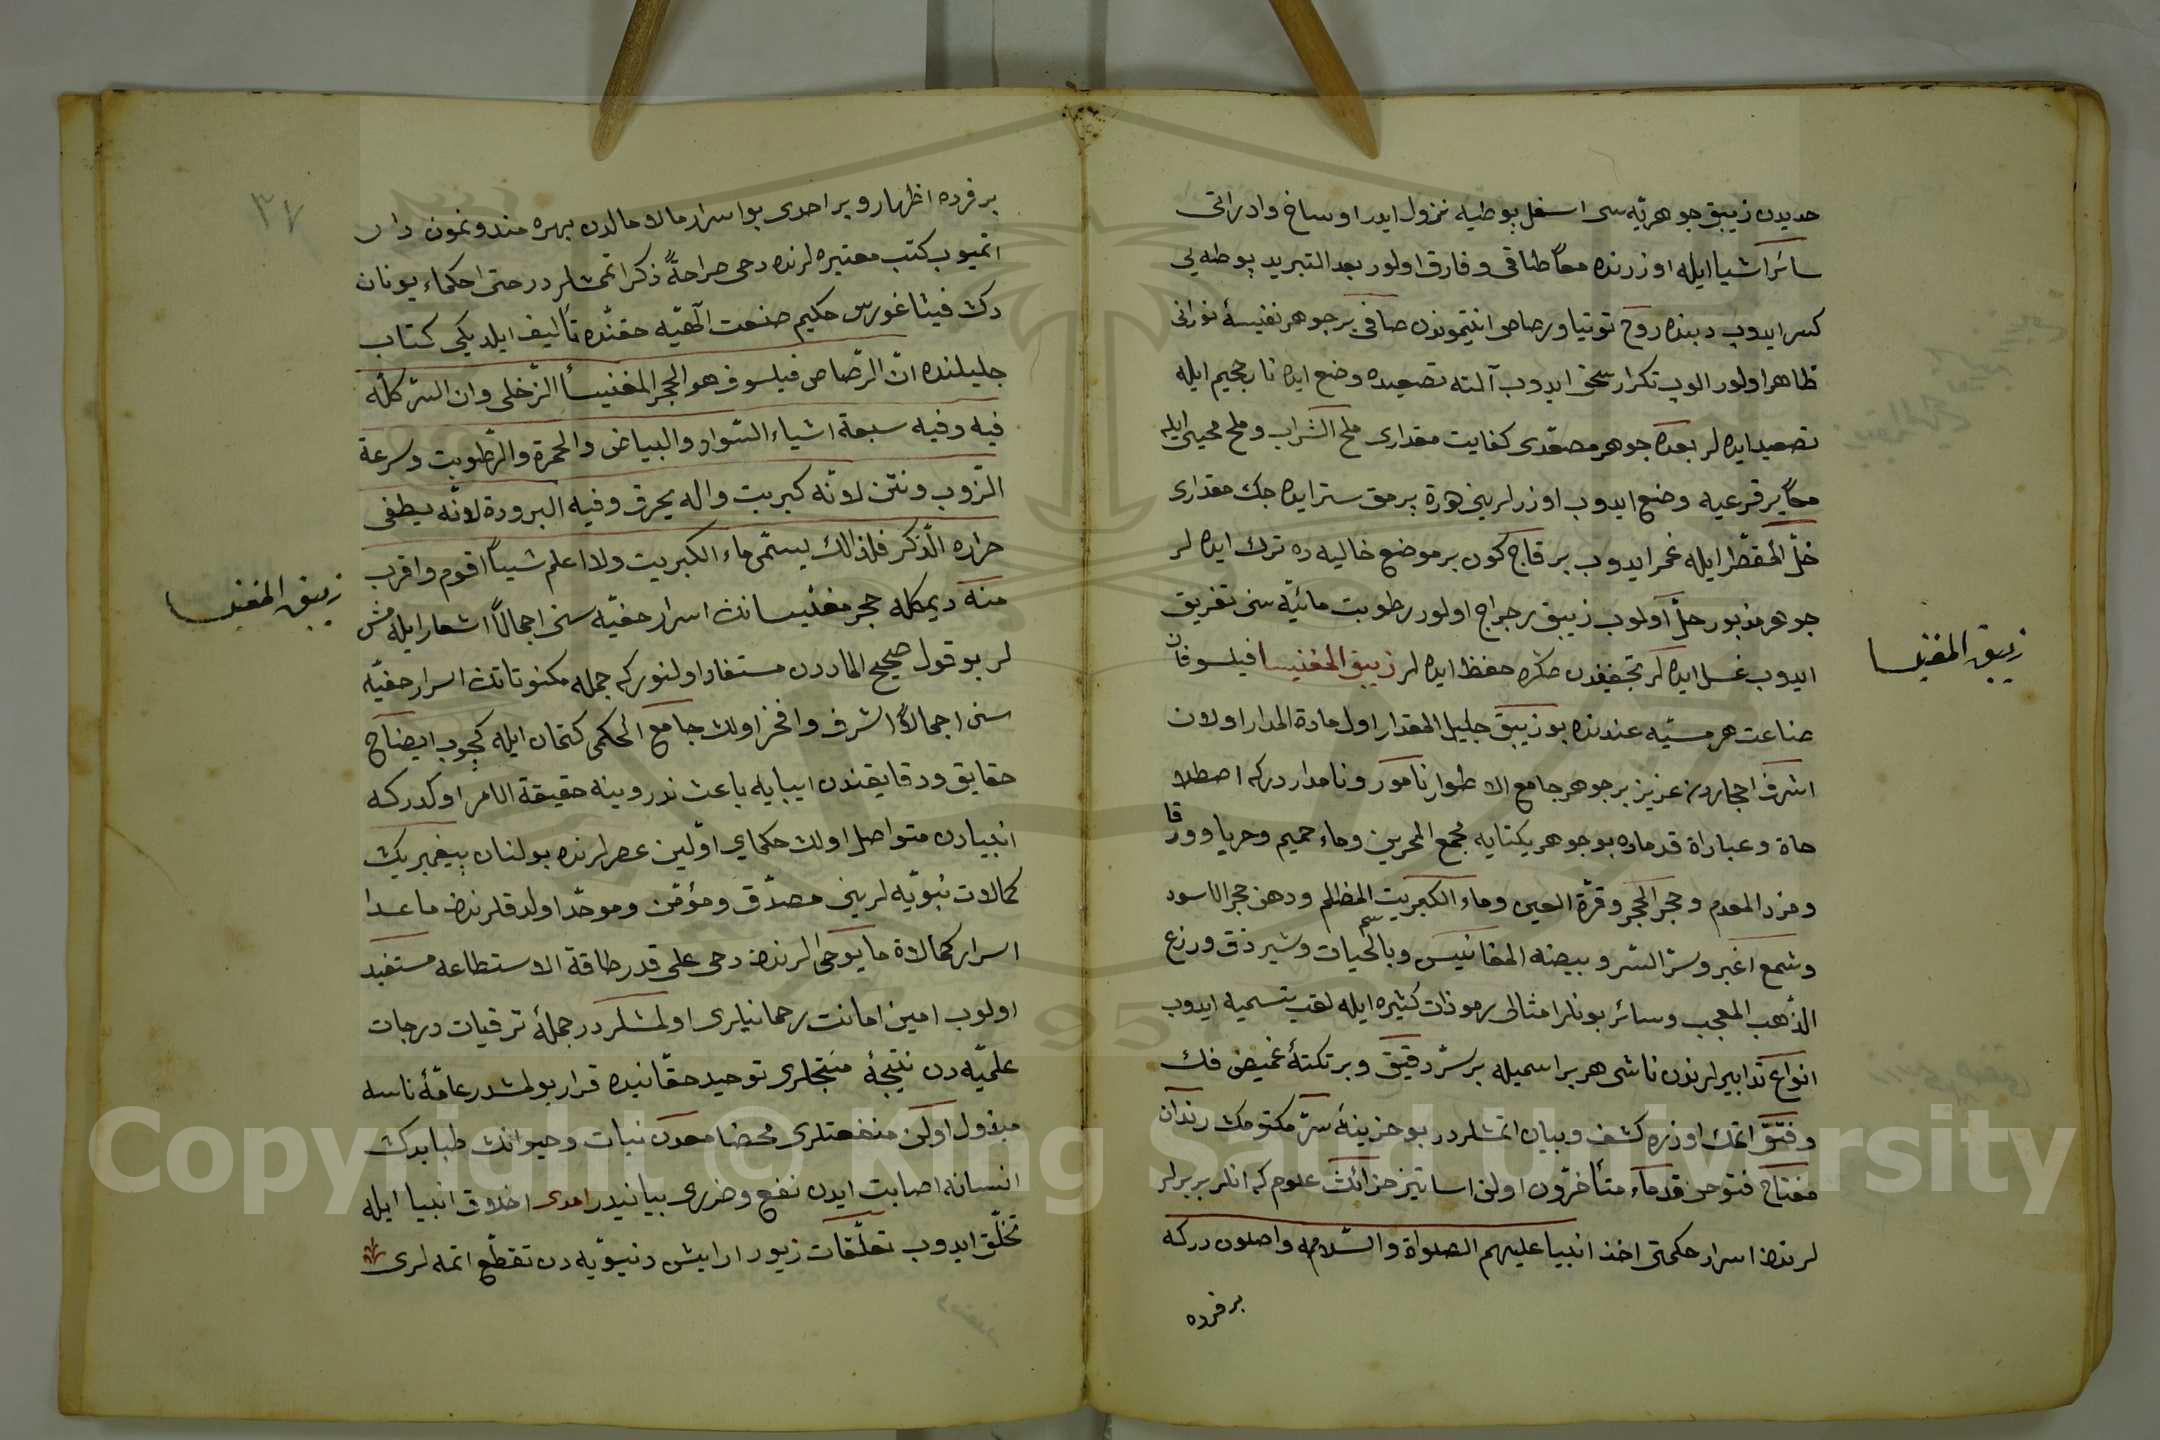 حديدن زيبق جوهريّه سى اسفل بوطيه نزول ايدر اوساخ وادراتى
سائر اشيا ايله اوزرنده معًا طناقى وفارق اولور بعد التبريد پوطه يى
كسر ايدوب دبنده روح توتيا ورصاص انتيمونون صافى بر جوهر نفيسۀ نورانى
ظاهر اولور الوب تكرار سحق ايدوب آلت تصعيده وضع ايده نار جحيم ايله
تصعيد ايده لر بعده جوهر مصعّدى كفايت مقدارى ملح الشراب وملح محيى ايله
معًا بر قرعيه وضع ايدوب اوزرلرينى هرة برمق ستر ايده جك مقدارى
خلّ المقطّر ايله غمر ايدوب بر قاج كون بر موضع خاليه ده ترك ايده لر
جوهر مذبور حلّ اولوب زيبق رجراج اولور رطوبت مائيّه سنى تفريق
ايدوب غسل ايده لر تجفيفدن صكره حفظ ايده لر زيبق المغنيسا فيلسوفان
صناعت هرمسيّه عندنده بو زيبق جليل المقدار اول مادة المدار اولان
اشرف احجاردن عزيز بر جوهر جامع الاطوار نامور ونامدار دركه اصطلا
حاة وعباراة قدماده بو جوهر يكتايه مجمع البحرين وماء حميم وحربا وورقا
ومزد المعدم وحجر الحجر وقرّة العين وماء الكبريت المظلم ودهن حجر الاسود
وشمع اغبر وسرّ السّر وبيضه المقانيس وبالحيات سم وشير ذق ورزع
الذّهب المعجب وسائر بونلر امثالى رموذات كثيره ايله لقب تسميه ايدوب
انواع تدابيرلرندن ناشى هر بر اسميله بر سرّ دقيق وبر نكتۀ غميض فك
وفتق اتمك اوزره كشف وبيان اتمشلردر بو خزينۀ سرّ مكتومك رندان
مفتاح فتوحى قدماء متأخّرون اولن اساتيز خزائنڭ علوم كه انلر بربرلر
لرندن اسرار حكمتى اخذ انبيا عليهم الصلواة والسّلامه واصلون دركه
بر فرده
زيبق المغنيسا
٣٧
بر فرده اظهار وبر احدى بو اسرار مالامالدن بهره مند ونمون دار
اتميوب كتب معتبره لرنده دحى صراحةً ذكر اتمشلردر حتى احكماء يونان
دڭ فيثاغورس حكيم صنعت الٓهيّه حقنده تأليف ايلديكى كتاب
جليلنده انّ الرّصاص فيلسوف هو الحجر المغنيسأ الزّخلى وان السّر كلّه
فيه وفيه سبعة اشياء السّواد والبياض والحمرة والرّطوبت وسرعة
الزّوب ونتن لونّه كبريت واله يحرق وفيه البرودة لانّه يطفى
حراره الذّكر فلذالك يسمّى ماء الكبريت ولا اعلم شيأً اقوم واقرب
منه ديمكله حجر مغنيسانڭ اسرار حفيّه سنى اجمالًا اشعار ايله مش
لر بو قول صحيح الماددن مستفاد اولنور كه جمله مكنوناتڭ اسرار حفيّه
سنى اجمالًا اشرف وافخر اولان جامع الحكمى كتمان ايله كچوب ايضاح
حقايق ودقايقندن ايبايه باعث ندر وينه حقيقة الامر اوكدركه
انبيادن متواصل اولان حكماى اوّلين عصرلرنده بولنان پيغمبريڭ
كمالات نبويّه لرينى مصدّق ومؤمّن وموحّد اولدقلرندن ماعدا
اسرار كمالاة ما يوحى لرندن دحى على قدر طاقة الاستطاعه مستفيد
اولوب امين امانت رحمانيلرى اولمشلردر جملۀ ترقيات درجات
علميّه دن نتيجۀ منتجلرى توحيد حقّانيده قرار بولمشدر عامّۀ ناسه
مبذول اولان منفعتلرى محضا معدن نبات وحيوانڭ طبايدڭ
انسانه اصابت ايدن نفع وضررى بيانيدر امدى اخلاق انبيا ايله
تخلّق ايدوب تعلّقات زيور ارايش دنيويّه دن تقطّع اتمه لرى
زيبق المغنيسا
Copyright © King Saud University